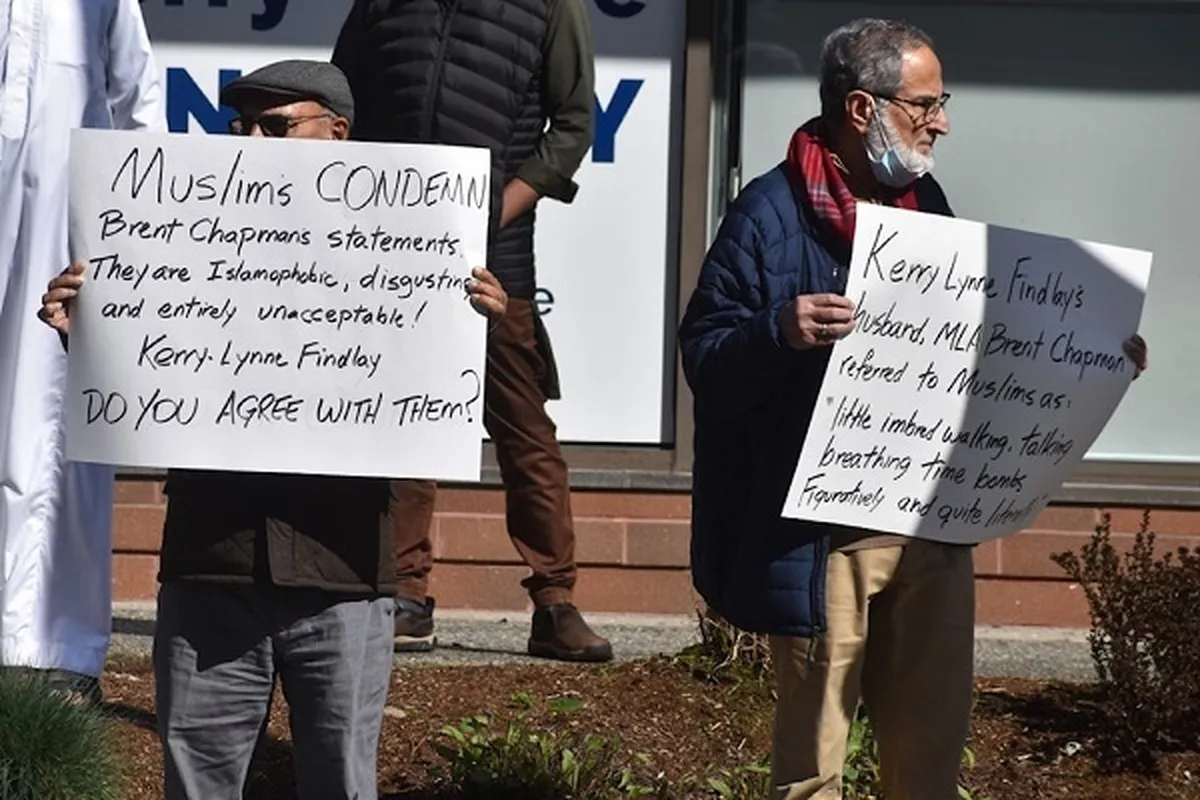 Muslim's CONDEMN
Brent Chapman's statements.
They are Islamophobic, disgusting
and entirely unacceptable!
Kerry-Lynne Findlay
DO YOU AGREE WITH THEM?
Kerry Lynne Findlay's
husband, MLA Brent Chapman
referred to Muslims as:
"little imbred walking, talking
breathing time bombs
Figuratively and quite
N
Y
e